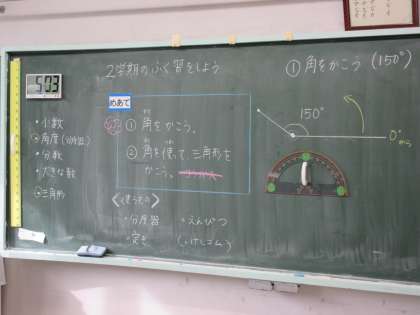 2学期のふく習をしよう
5:03
・小数
・角度(分度器)
・分数
・大きな数
・三角形
めあて
① 角をかこう。
② 角を使って、三角形を
かこう。
<使うもの>
・分度器
・定ぎ
・えんぴつ
(・けしゴム)
① 角をかこう (150°)
150°
0°から